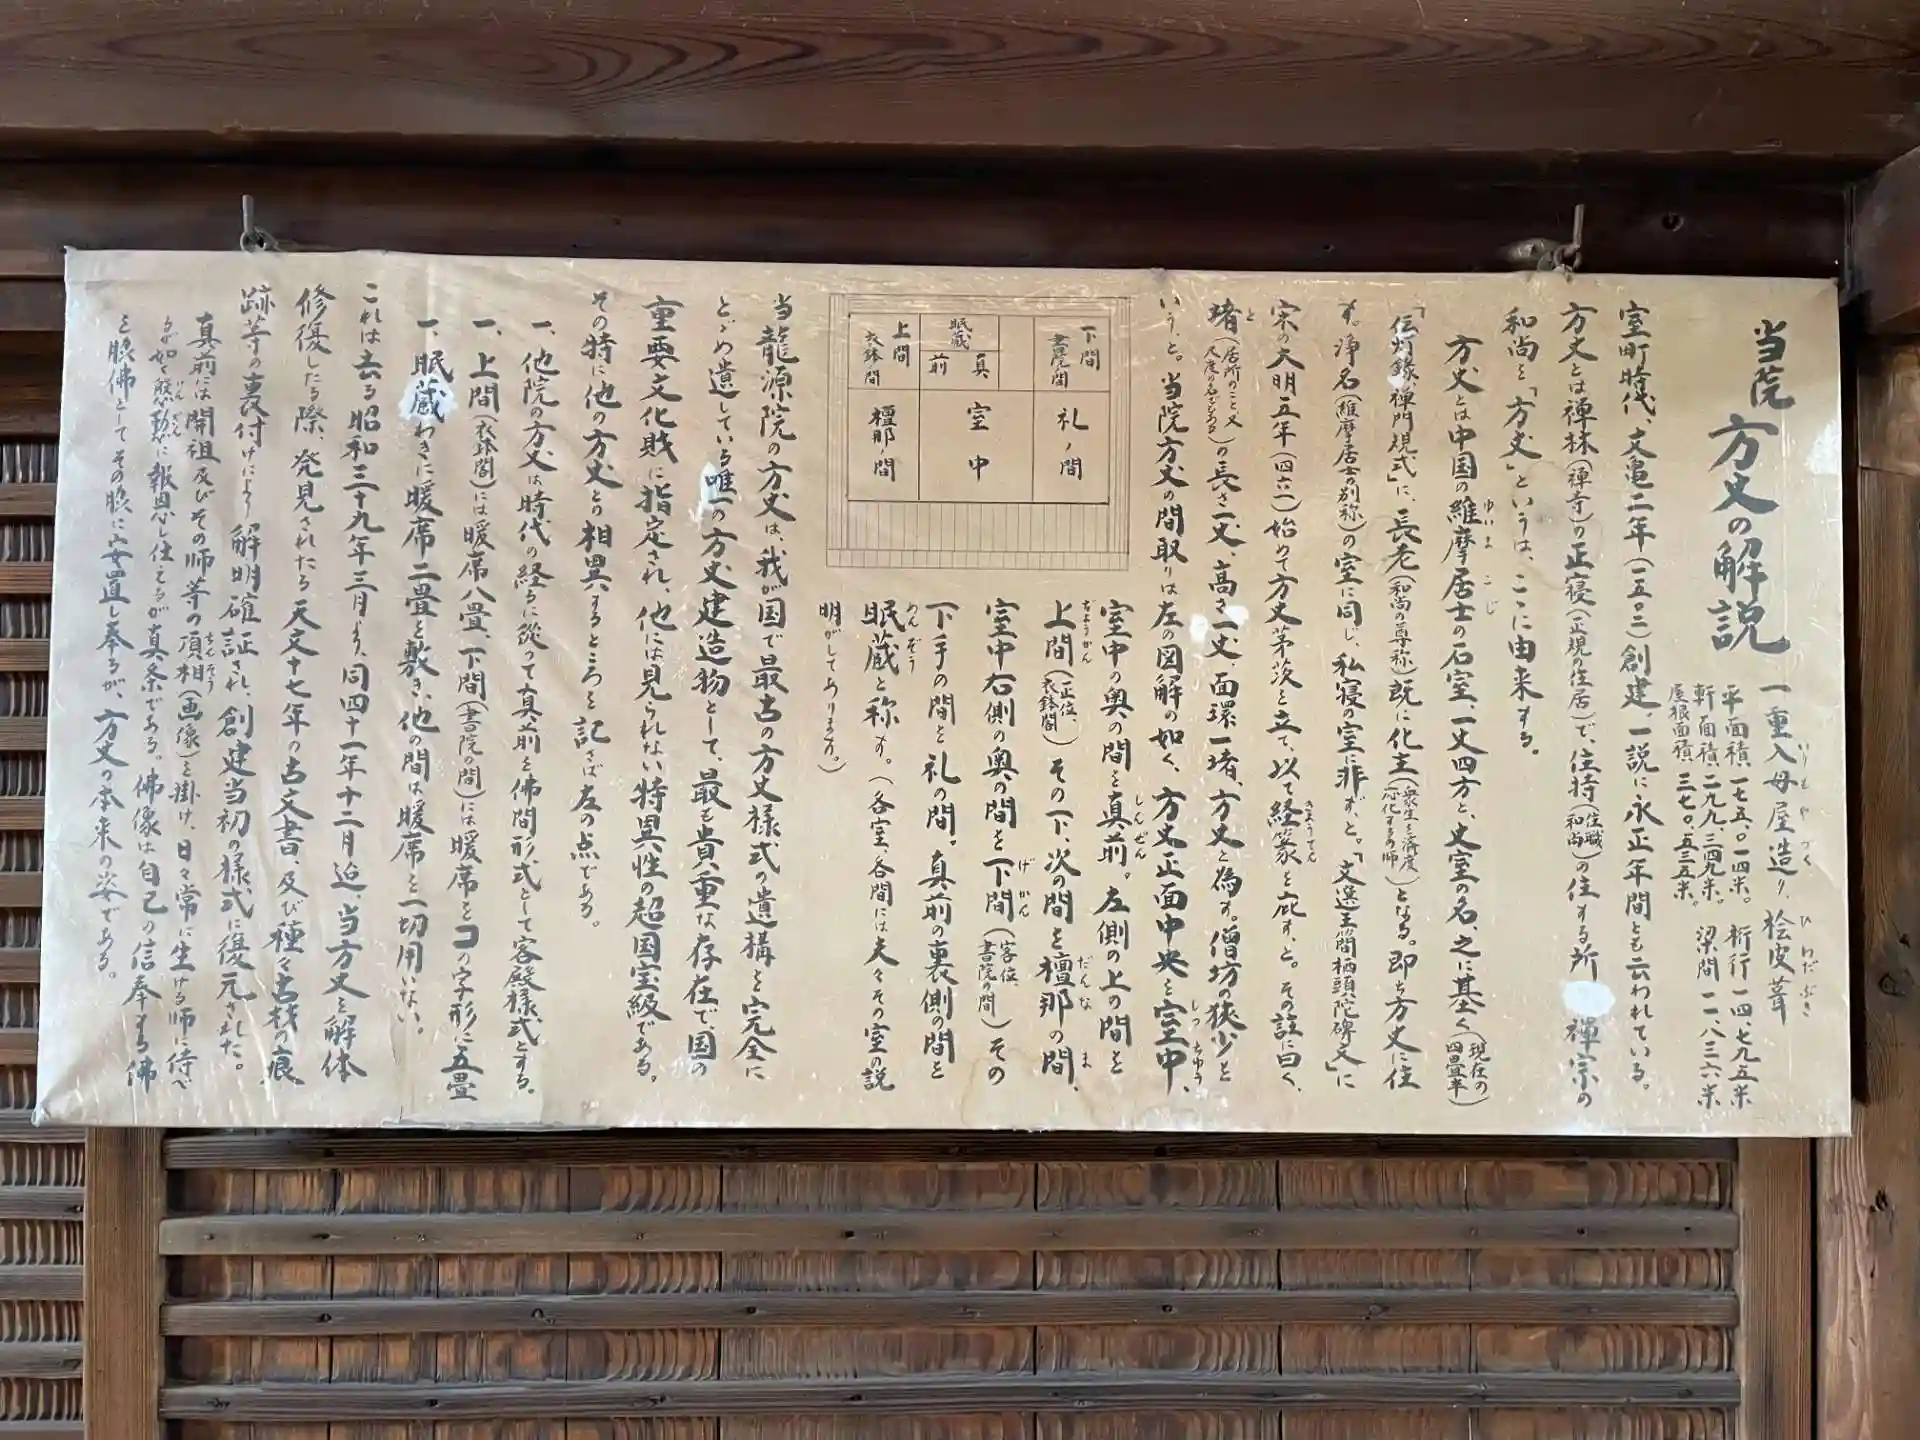 当院方丈の解説
一重入母屋造り、桧皮葺
いりもやづく
ひわだぶき
平面積 一七五.〇一四米。 桁行 一四、七九五米
軒面積 二九九、三四九米。 梁間 一一、八三六米
屋根面積 三七〇.五三五米。
室町時代、文亀二年(一五〇二)創建、一説に永正年間とも云われている。
方丈とは禅林(禅寺)の正寝(正規の住居)で、住持(住職和尚)の住する所 禅宗の
和尚を「方丈」というは、ここに由来する。
方丈とは中国の維摩居士の石室、一丈四方と、丈室の名、之に基く(現在の四畳半)
ゆいまこじ
「伝灯録、禅門規式」に、長老(和尚の尊称)既に化主(衆生を済度応化するの師)となる。即ち方丈に住
す。浄名(維摩居士の別称)の室に同じ、私寝の室に非ず、と。「文選王簡栖頭陀碑文」に
宋の大明五年(四六一)始めて方丈茅茨を立て、以て経篆を庇す、と。その註に曰く、
きょうてん
堵(居所のこと又尺度の名である)の長さ一丈、高さ一丈、面環一堵、方丈と為す。僧坊の狭少を
と
いう、と。当院方丈の間取りは左の図解の如く、方丈正面中央を室中、
しっちゅう
室中の奥の間を真前。左側の上の間を
しんぜん
上間(正位衣鉢閣)その下、次の間を檀那の間、
じょうかん
だんなま
室中右側の奥の間を下間(客位書院の間)その
げかん
下手の間を礼の間。真前の裏側の間を
眠蔵と称す。(各室、各間には夫々その室の説
めんぞう
明がしてあります。)
下間
書院間
礼ノ間
眠蔵
真
前
室中
上間
衣鉢間
檀那ノ間
当龍源院の方丈は、我が国で最古の方丈様式の遺構を完全に
とゞめ遺している唯一の方丈建造物として、最も貴重な存在で、国の
重要文化財に指定され、他には見られない特異性の超国宝級である。
その特に他の方丈との相異するところを記さば左の点である。
一、他院の方丈は時代の経るに従って真前を佛間形式として客殿様式とする。
一、上間(衣鉢閣)には暖席八畳、下間(書院の間)には暖席をコの字形に五畳
一、眠蔵わきに暖席二畳を敷き、他の間は暖席を一切用いない。
これは去る昭和三十九年三月より同四十一年十二月迄、当方丈を解体
修復したる際、発見されたる天文十七年の古文書、及び種々古材の痕
跡等の裏付けにより解明確証され、創建当初の様式に復元された。
真前には開祖及びその師等の頂相(画像)を掛け、日々常に生ける師に侍べ
ちんそう
るが如く慇懃に報恩し仕えるが真条である。佛像は自己の信奉する佛
いんぎん
を脇佛としてその脇に安置し奉るが、方丈の本来の姿である。